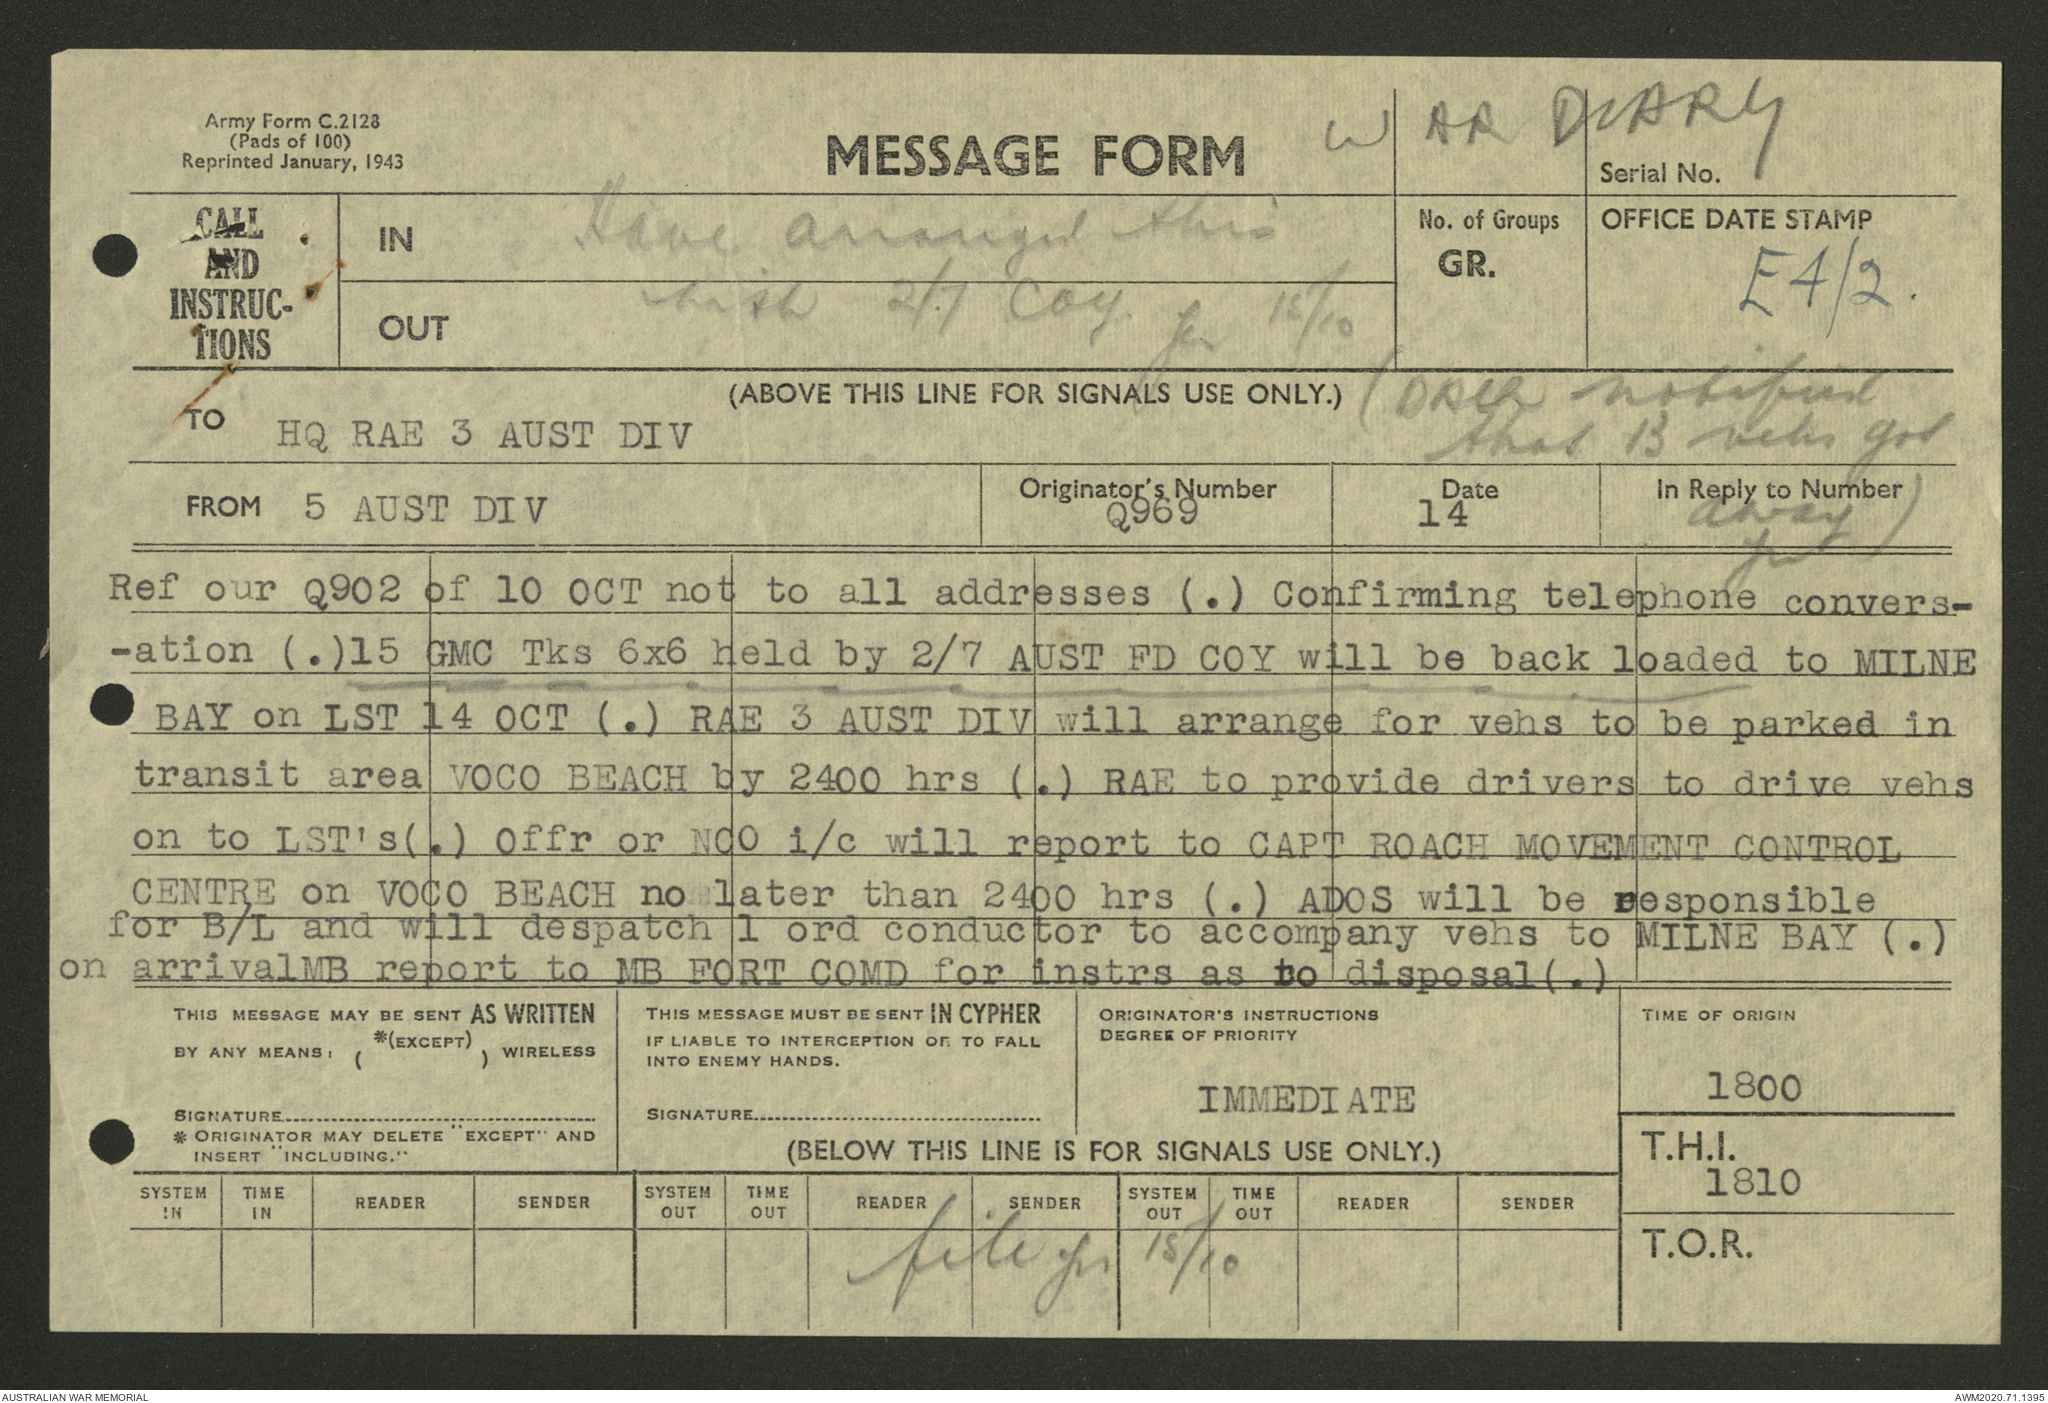 Army Form C.2128
(Pads of 100)
Reprinted January, 1943
MESSAGE FORM
WAR DIARY
Serial No.
CALL
AND
INSTRUC-
TIONS
IN
Have arranged this
OUT
with 2/7 Coy. 15/10
No. of Groups
GR.
OFFICE DATE STAMP
E4/2.
(ABOVE THIS LINE FOR SIGNALS USE ONLY.)
notified
that 13 vehs got
away)
TO HQ RAE 3 AUST DIV
FROM 5 AUST DIV
Originator's Number
Q969
Date
14
In Reply to Number
Ref our Q902 of 10 OCT not to all addresses (.) Confirming telephone convers-
-ation (.)15 GMC Tks 6x6 held by 2/7 AUST FD COY will be back loaded to MILNE
BAY on LST 14 OCT (.) RAE 3 AUST DIV will arrange for vehs to be parked in
transit area VOCO BEACH by 2400 hrs (.) RAE to provide drivers to drive vehs
on to LST's(.) Offr or NCO i/c will report to CAPT ROACH MOVEMENT CONTROL
CENTRE on VOCO BEACH no later than 2400 hrs (.) ADOS will be responsible
for B/L and will despatch 1 ord conductor to accompany vehs to MILNE BAY (.)
on arrivalMB report to MB FORT COMD for instrs as to disposal(.)
THIS MESSAGE MAY BE SENT AS WRITTEN
BY ANY MEANS: ( *(EXCEPT) ) WIRELESS
SIGNATURE
* ORIGINATOR MAY DELETE "EXCEPT" AND
INSERT "INCLUDING."
THIS MESSAGE MUST BE SENT IN CYPHER
IF LIABLE TO INTERCEPTION OR TO FALL
INTO ENEMY HANDS.
SIGNATURE
ORIGINATOR'S INSTRUCTIONS
DEGREE OF PRIORITY
IMMEDIATE
(BELOW THIS LINE IS FOR SIGNALS USE ONLY.)
TIME OF ORIGIN
1800
T.H.I.
1810
T.O.R.
SYSTEM IN TIME IN READER SENDER SYSTEM OUT TIME OUT READER SENDER SYSTEM OUT TIME OUT READER SENDER
file 15/10
AUSTRALIAN WAR MEMORIAL
AWM2020.71.1395